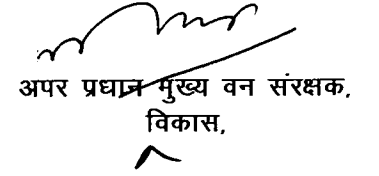 अपर प्रधान मुख्य वन संरक्षक,
विकास,